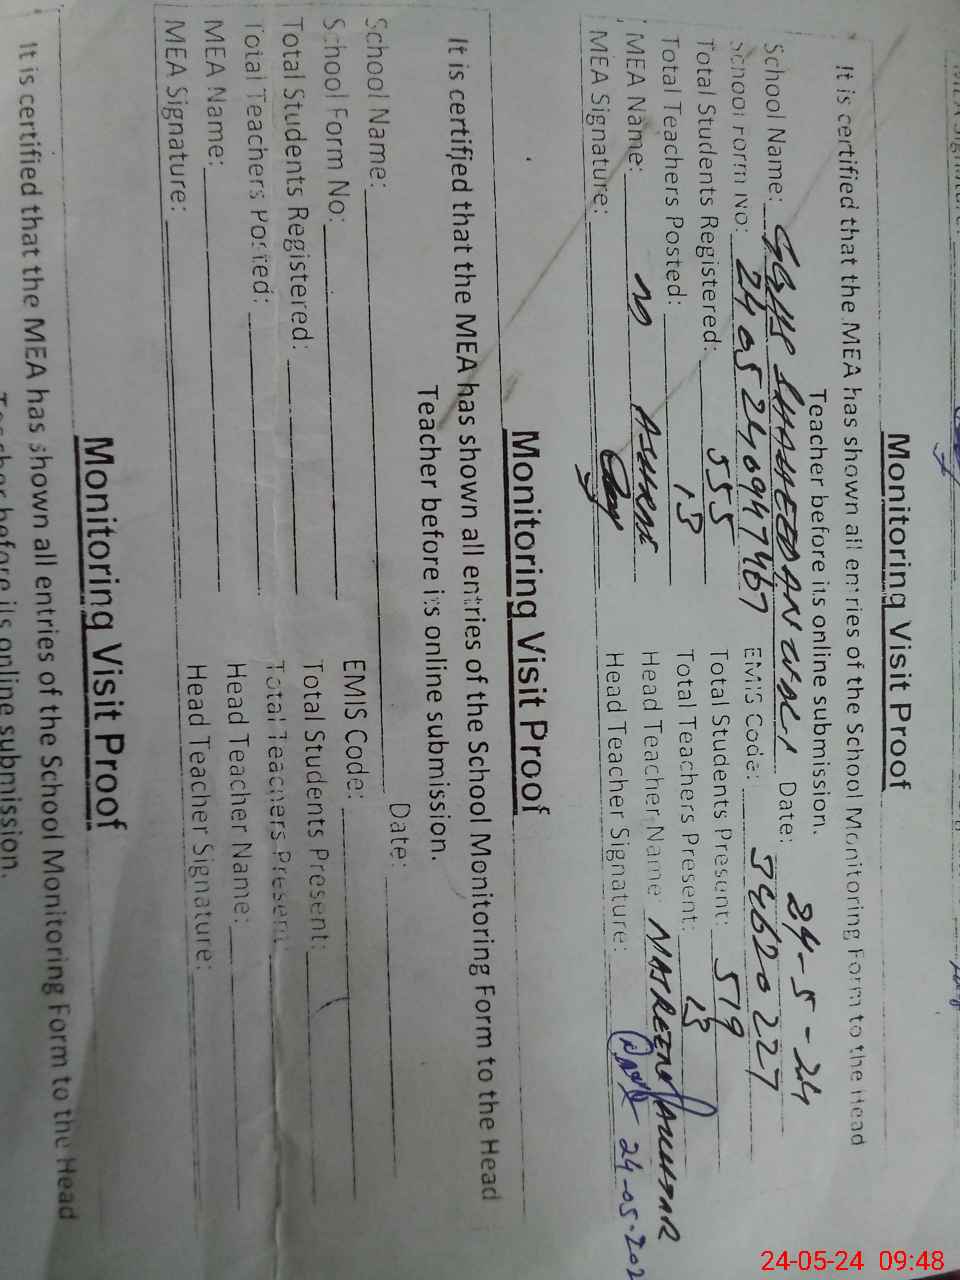 Monitoring Visit Proof
It is certified that the MEA has shown all entries of the School Monitoring Form to the Head
Teacher before its online submission.
School Name: GGHS SHAHEEDANWALI Date: 24-5-24
School Form No: 2405240947467 EMIS Code: 34620227
Total Students Registered: 555 Total Students Present: 519
Total Teachers Posted: 13 Total Teachers Present: 13
MEA Name: M Head Teacher Name: NASREEN AKHTAR
MEA Signature: Head Teacher Signature: 24-05-202
Monitoring Visit Proof
It is certified that the MEA has shown all entries of the School Monitoring Form to the Head
Teacher before its online submission.
School Name: Date:
School Form No: EMIS Code:
Total Students Registered: Total Students Present:
Total Teachers Posted: Total Teachers Present:
MEA Name: Head Teacher Name:
MEA Signature: Head Teacher Signature:
Monitoring Visit Proof
It is certified that the MEA has shown all entries of the School Monitoring Form to the Head
Teacher before its online submission.
24-05-24 09:48